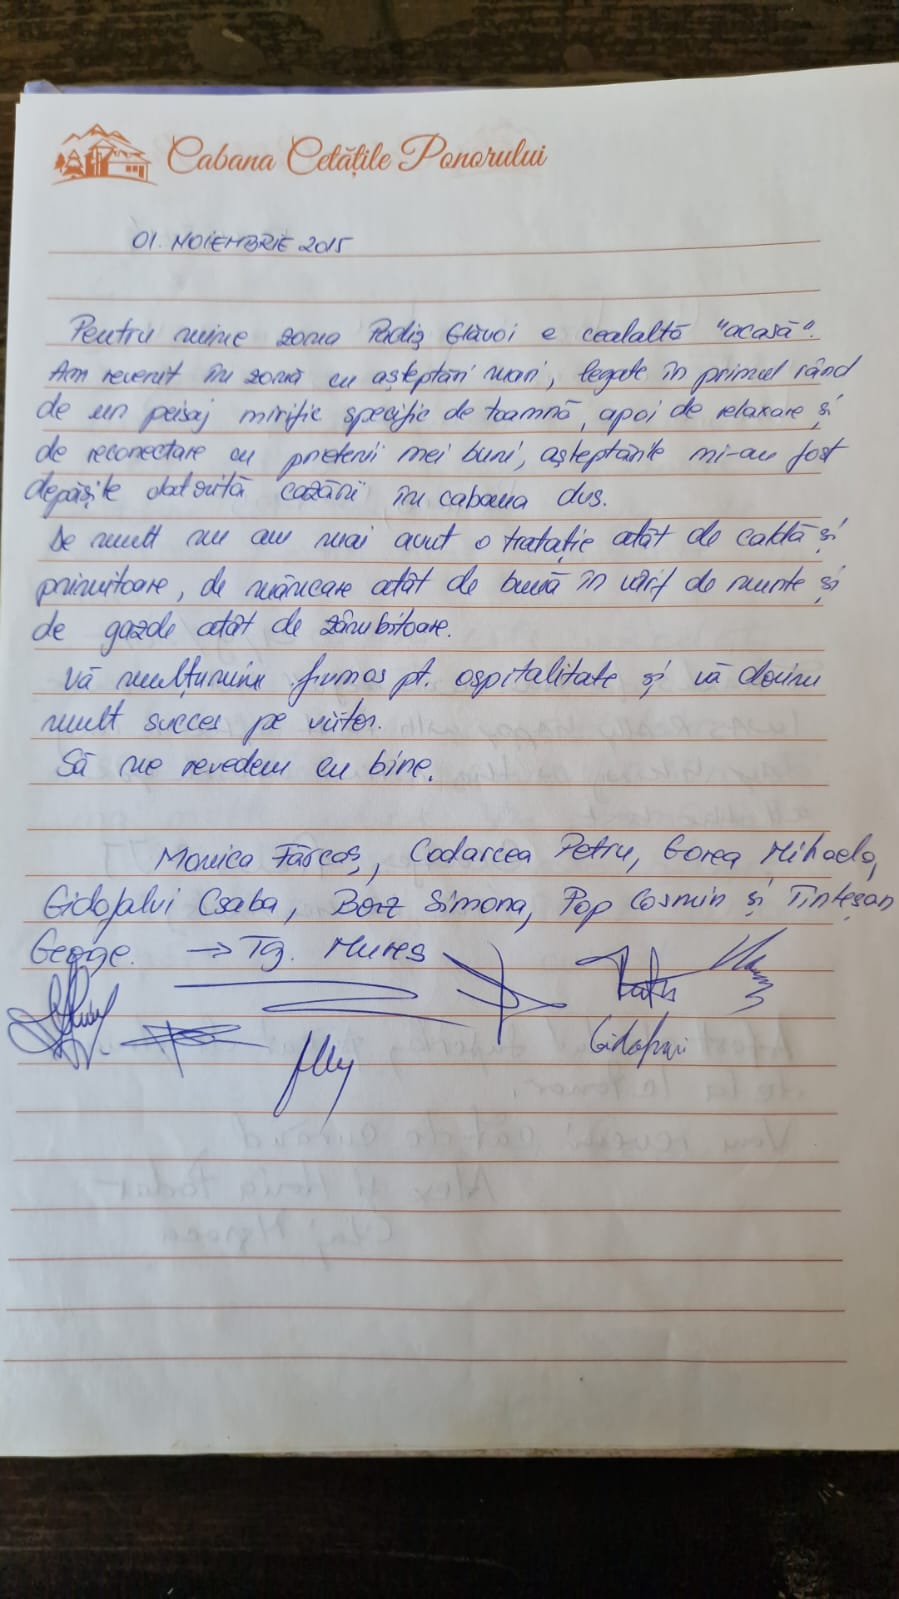 Cabana Cetățile Ponorului
01. NOIEMBRIE 2015
Pentru mine zona Padiș Glăvoi e cealaltă "acasă".
Am revenit în zonă cu așteptări mari, legate în primul rând
de un peisaj mirific specific de toamnă, apoi de relaxare și
de reconectare cu prietenii mei buni, așteptările mi-au fost
depășite datorită cazării în cabana dvs.
De mult nu am mai avut o tratație atât de caldă și
primitoare, de mâncare atât de bună în vârf de munte și
de gazde atât de zâmbitoare.
Vă mulțumim frumos pt. ospitalitate și vă dorim
mult succes pe viitor.
Să ne revedem cu bine.
Monica Fărcaș, Codarcea Petru, Gorea Mihaela,
Gidofalvi Csaba, Borz Simona, Pop Cosmin și Tinteșan
George. → Tg. Mureș